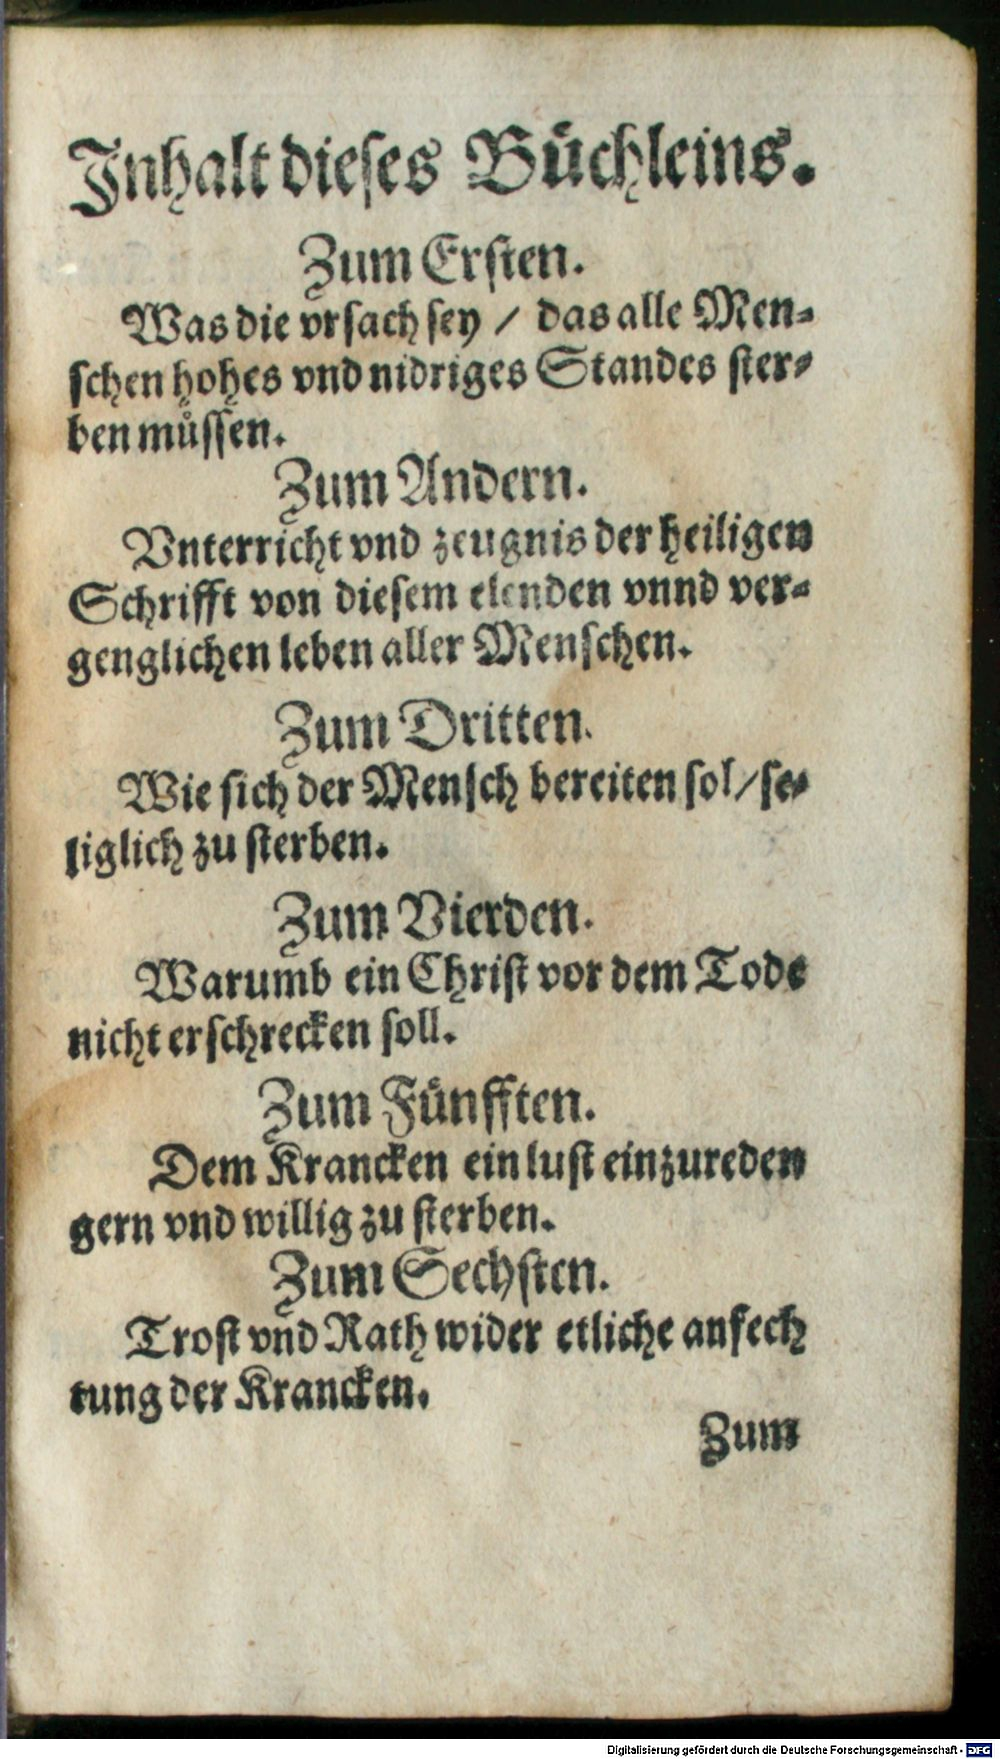 Inhalt dieses Büchleins.
Zum Ersten.
Was die vrsach sey / das alle Men-
schen hohes vnd nidriges Standes ster-
ben müssen.
Zum Andern.
Vnterricht vnd zeugnis der heiligen
Schrifft von diesem elenden vnnd ver-
genglichen leben aller Menschen.
Zum Dritten.
Wie sich der Mensch bereiten sol / se-
liglich zu sterben.
Zum Vierden.
Warumb ein Christ vor dem Tode
nicht erschrecken soll.
Zum Fünfften.
Dem Krancken ein lust einzureden
gern vnd willig zu sterben.
Zum Sechsten.
Trost vnd Rath wider etliche anfech
tung der Krancken.
Zum
Digitalisierung gefördert durch die Deutsche Forschungsgemeinschaft - DFG